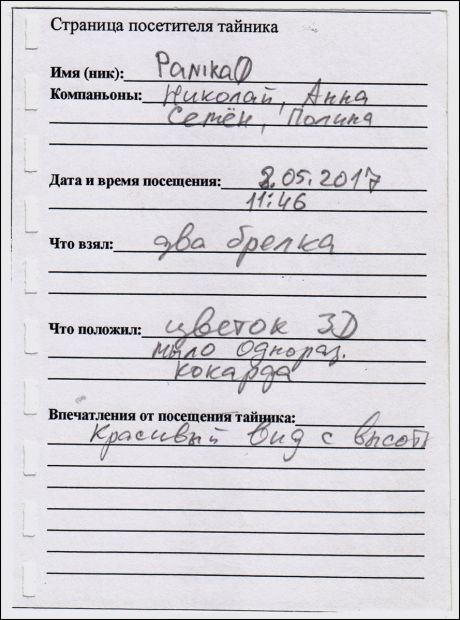 Страница посетителя тайника
Имя (ник): PaNikaD
Компаньоны: Николай, Анна
Семён, Полина
Дата и время посещения: 8.05.2017
11:46
Что взял: два брелка
Что положил: цветок 3D
мыло однораз.
кокарда
Впечатления от посещения тайника:
Красивый вид с высоты